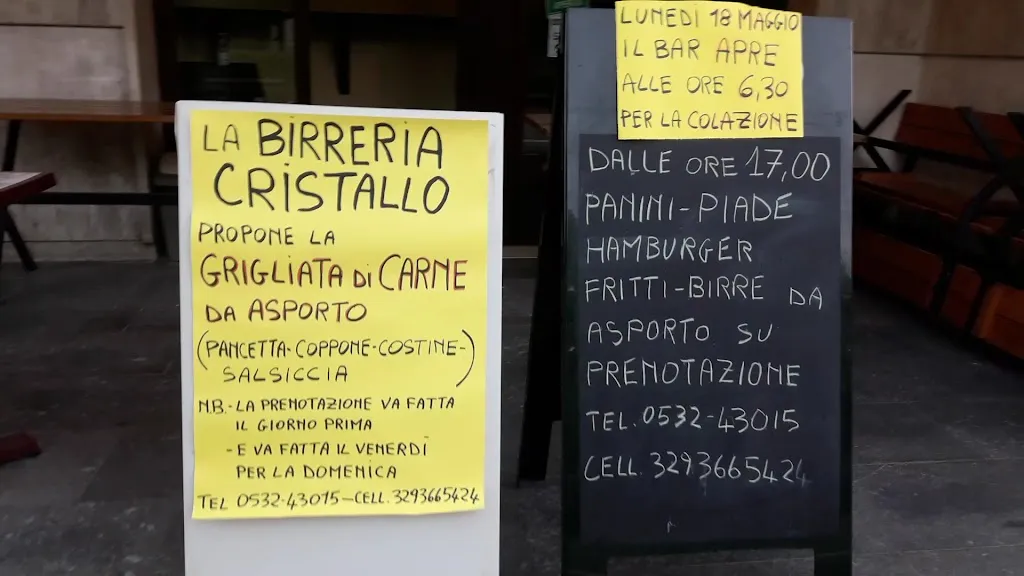 LA BIRRERIA
CRISTALLO
PROPONE LA
GRIGLIATA di CARNE
DA ASPORTO
(PANCETTA-COPPONE-COSTINE-
SALSICCIA)
N.B.- LA PRENOTAZIONE VA FATTA
IL GIORNO PRIMA
- E VA FATTA IL VENERDÌ
PER LA DOMENICA
TEL 0532-43015-CELL.3293665424
LUNEDI 18 MAGGIO
IL BAR APRE
ALLE ORE 6,30
PER LA COLAZIONE
DALLE ORE 17,00
PANINI-PIADE
HAMBURGER
FRITTI-BIRRE DA
ASPORTO SU
PRENOTAZIONE
TEL.0532-43015
CELL.3293665424